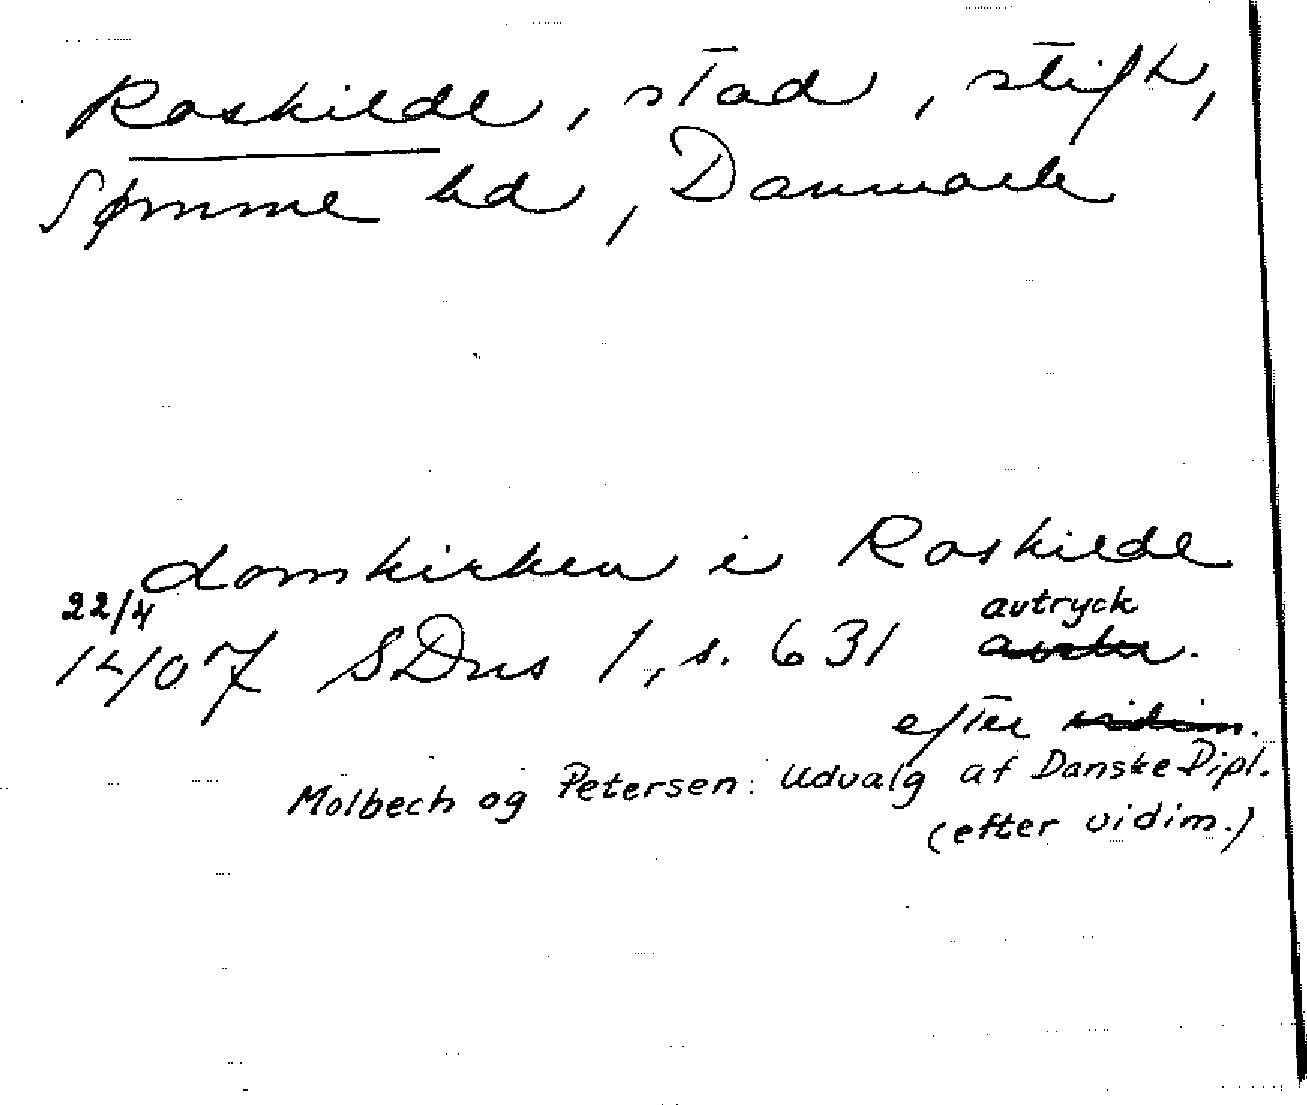 Roskilde, stad, stift,
Sømme hd, Danmark
domkirken i Roskilde
22/4
1407 SDns 1, s. 631 avtryck
efter vidim.
Molbech og Petersen: Udvalg af Danske Dipl.
(efter vidim.)